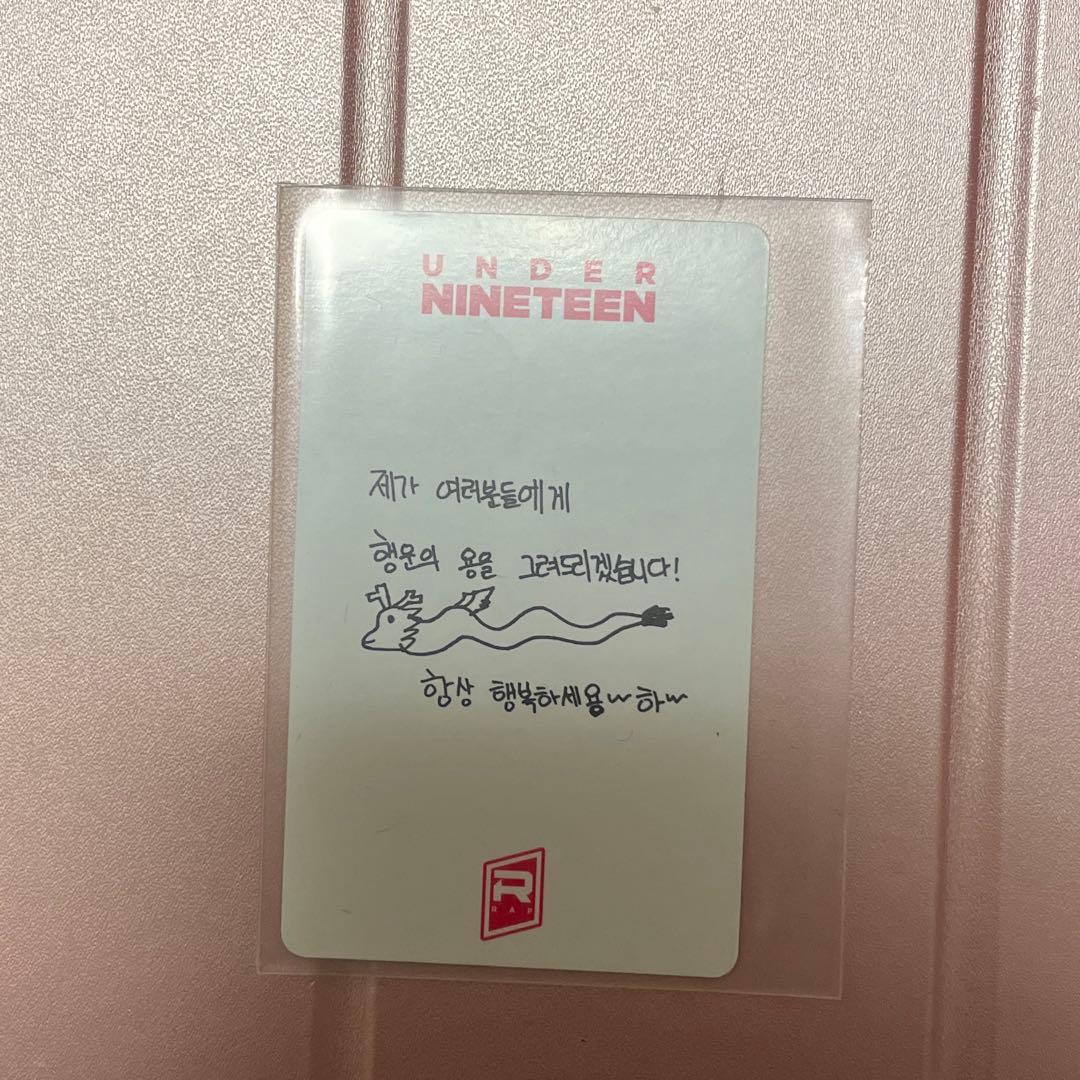 UNDER
NINETEEN
제가 여러분들에게
행운의 용을 그려드리겠습니다!
항상 행복하세용~하~
R
RAP